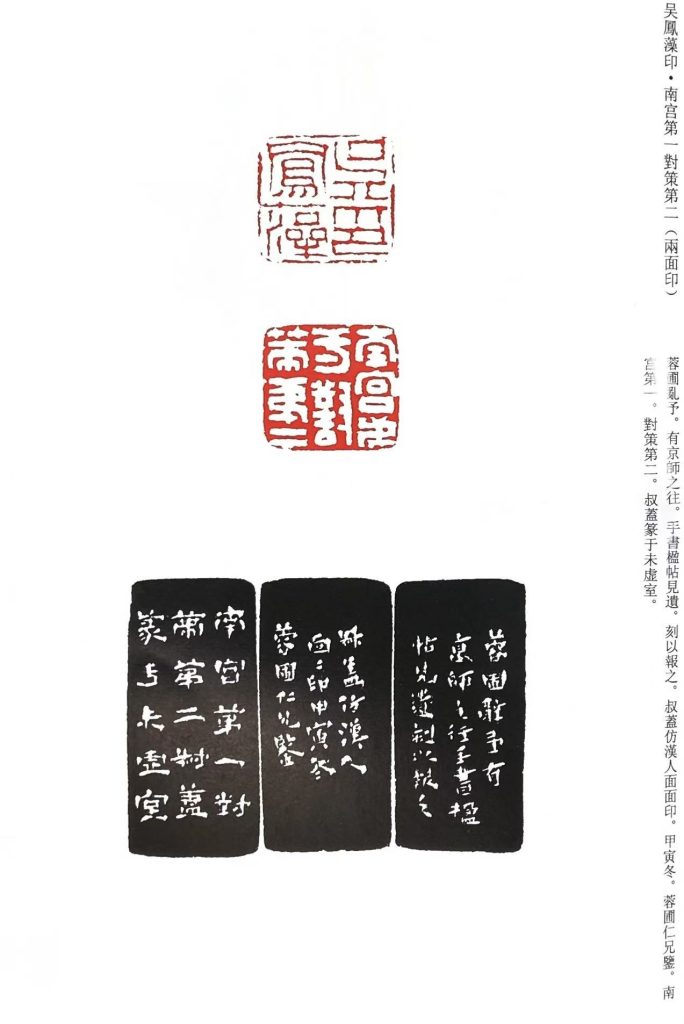 吴鳳藻印•南宫第一對策第二（兩面印）
蓉圃亂予。有京師之往。手書楹帖見遺。刻以報之。叔蓋仿漢人面面印。甲寅冬。蓉圃仁兄鑒。南
宫第一。對策第二。叔蓋篆于未虚室。
吴印
鳳藻
南宫第
一對
策第二
蓉圃亂予有
京師之往手書楹
帖見遺刻以報之
叔蓋仿漢人
面面印甲寅冬
蓉圃仁兄鑒
南宫第一對
策第二叔蓋
篆于未虚室